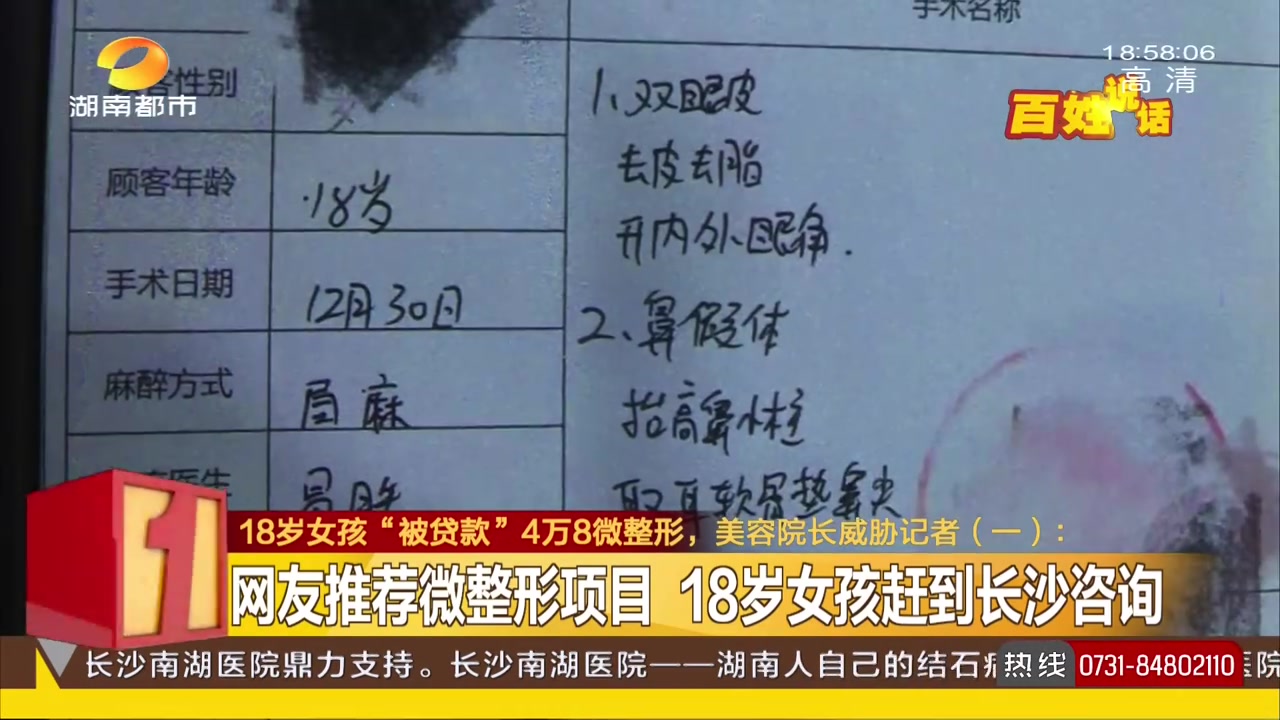 手术名称
18:58:06
高清
湖南都市
百姓说话
客性别
女
顾客年龄
18岁
手术日期
12月30日
麻醉方式
局麻
医生
1、双眼皮
去皮去脂
开内外眼角.
2、鼻假体
抬高鼻小柱
取耳软骨垫鼻尖
1
18岁女孩“被贷款”4万8微整形，美容院长威胁记者（一）：
网友推荐微整形项目 18岁女孩赶到长沙咨询
长沙南湖医院鼎力支持。长沙南湖医院——湖南人自己的结石
热线 0731-84802110
医院